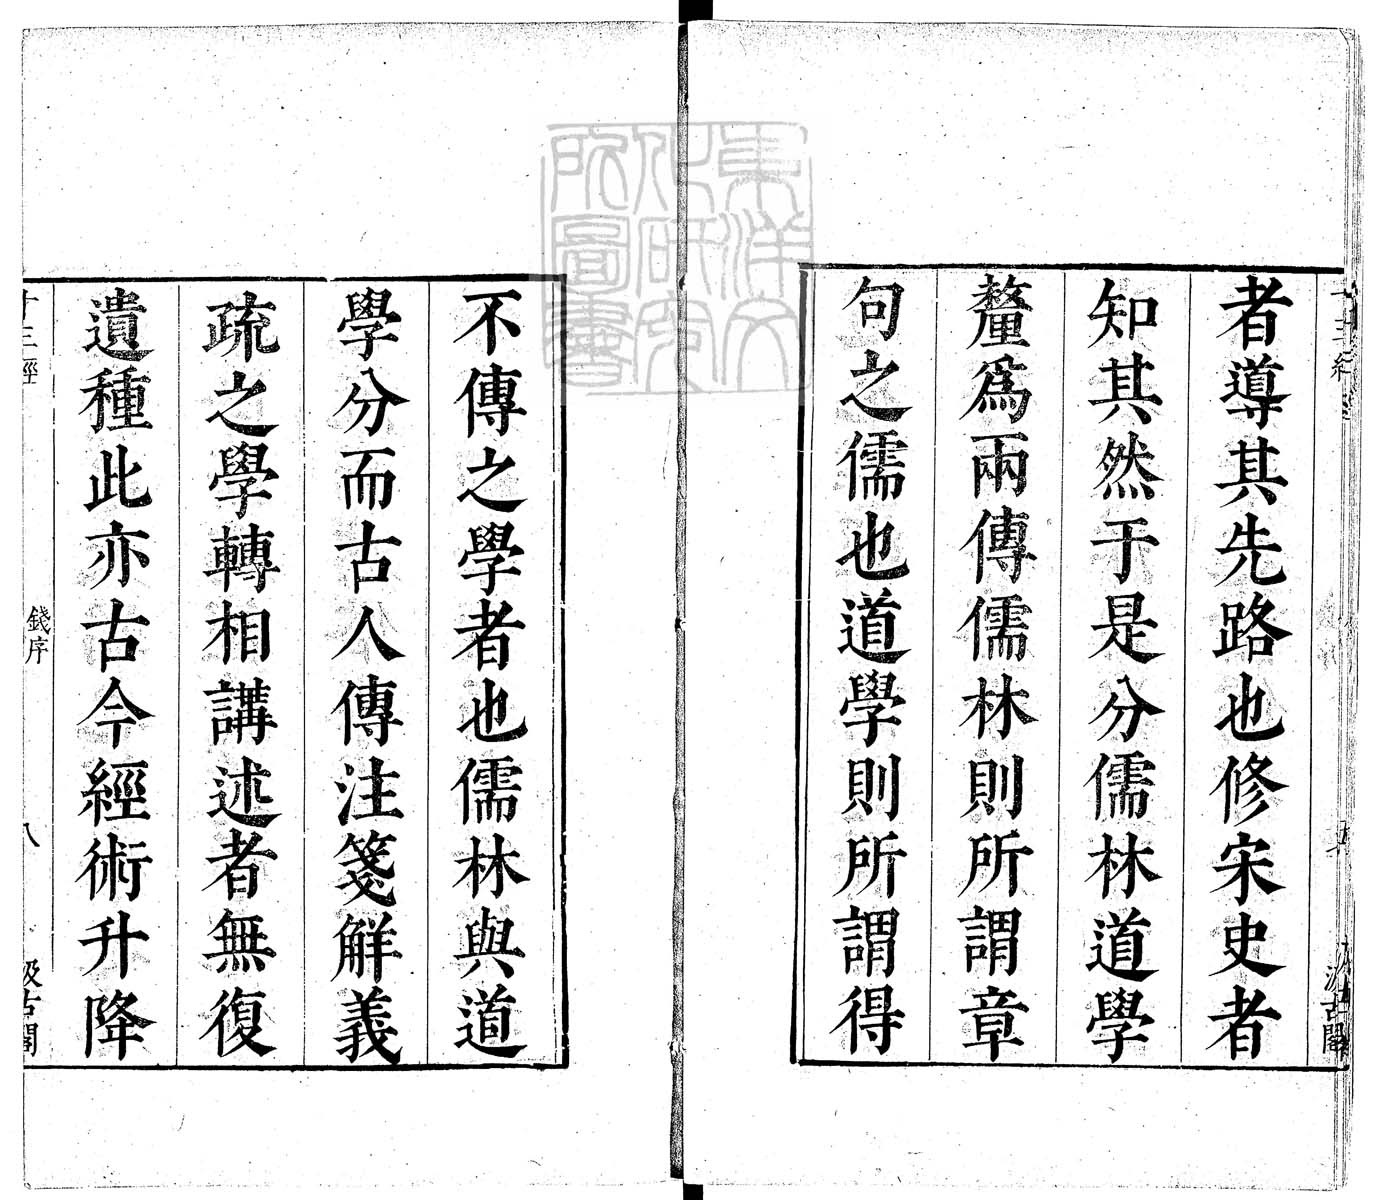 者導其先路也修宋史者
知其然于是分儒林道學
釐爲兩傳儒林則所謂章
句之儒也道學則所謂得
不傳之學者也儒林與道
學分而古人傳注箋解義
疏之學轉相講述者無復
遺種此亦古今經術升降
十三經
錢序
八
汲古閣
東洋文
化研究
所圖書